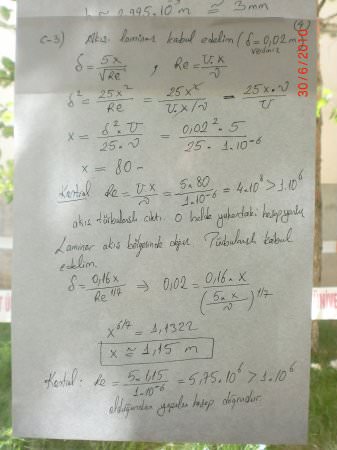 h ≅ 2,995.10⁻³ m ≅ 3mm
(4)
C-3) Akış laminer kabul edelim (δ = 0,02 m
verilmiş
δ = 5x / √Re , Re = U.x / ν
δ² = 25x² / Re = 25x² / U.x/ν = 25x.ν / U
x = δ².U / 25.ν = 0,02².5 / 25.1.10⁻⁶
x = 80 m
Kontrol Re = U.x / ν = 5.80 / 1.10⁻⁶ = 4.10⁸ > 1.10⁶
akış türbülanslı çıktı. O halde yukarıdaki hesap yanlış
Laminer akış bölgesinde değil. Türbülanslı kabul
edelim.
δ = 0,16x / Re^1/7 ⇒ 0,02 = 0,16.x / (5.x / ν)^1/7
x^6/7 = 1,1322
x ≅ 1,15 m
Kontrol: Re = 5.1,15 / 1.10⁻⁶ = 5,75.10⁶ > 1.10⁶
olduğundan yapılan hesap doğrudur.
30/6/2010